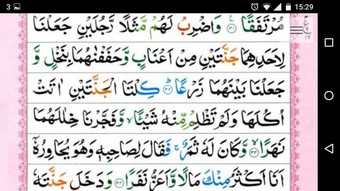 3 15:29
مُرْتَفَقًا ۝٣١ وَاضْرِبْ لَهُمْ مَّثَلًا رَّجُلَيْنِ جَعَلْنَا
لِاَحَدِهِمَا جَنَّتَيْنِ مِنْ اَعْنَابٍ وَّحَفَفْنٰهُمَا بِنَخْلٍ وَّ
جَعَلْنَا بَيْنَهُمَا زَرْعًا ۝٣٢ كِلْتَا الْجَنَّتَيْنِ اٰتَتْ
اُكُلَهَا وَلَمْ تَظْلِمْ مِّنْهُ شَيْـًٔا وَّفَجَّرْنَا خِلٰلَهُمَا
نَهَرًا ۝٣٣ وَّكَانَ لَهٗ ثَمَرٌ فَقَالَ لِصَاحِبِهٖ وَهُوَ يُحَاوِرُهٗٓ
اَنَا اَكْثَرُ مِنْكَ مَالًا وَّاَعَزُّ نَفَرًا ۝٣٤ وَدَخَلَ جَنَّتَهٗ